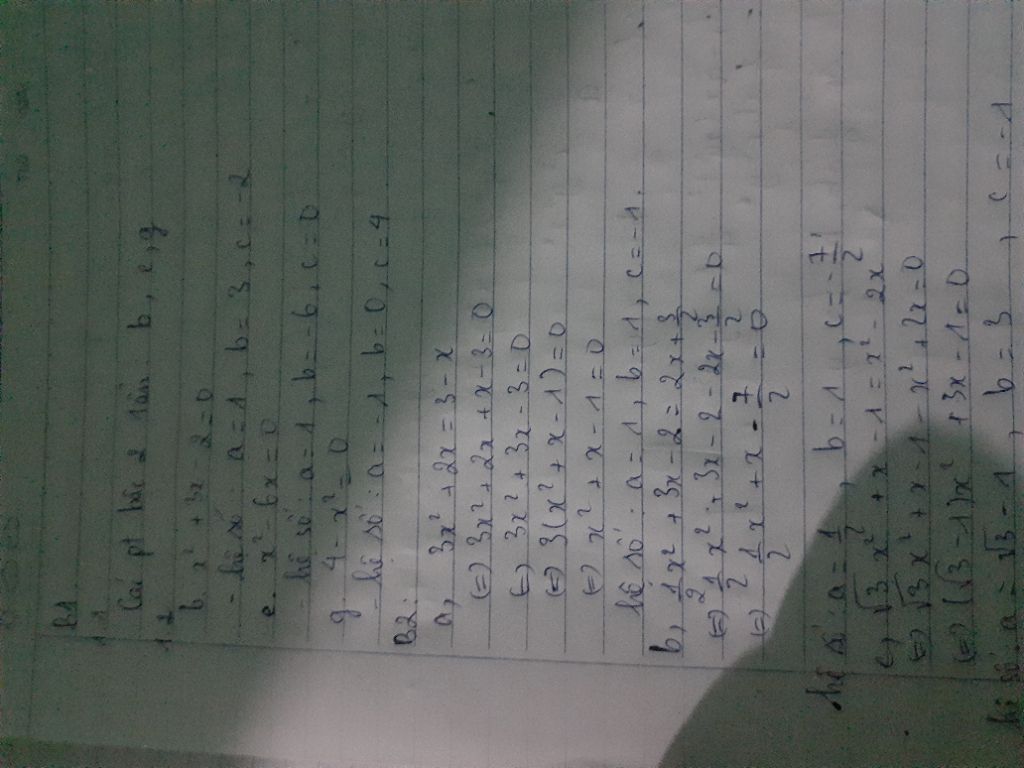 B1
1.1
Các pt bậc 2 1 ẩn: b, e, g
1.2
b. x² + 3x - 2 = 0
- hệ số: a = 1, b = 3, c = -2
e. x² - 6x = 0
- hệ số: a = 1, b = -6, c = 0
g. 4 - x² = 0
- hệ số: a = -1, b = 0, c = 4
B2:
a, 3x² + 2x = 3 - x
(=) 3x² + 2x + x - 3 = 0
(=) 3x² + 3x - 3 = 0
(=) 3(x² + x - 1) = 0
(=) x² + x - 1 = 0
hệ số: a = 1, b = 1, c = -1.
b, 1/2 x² + 3x - 2 = 2x + 3/2
(=) 1/2 x² + 3x - 2 - 2x - 3/2 = 0
(=) 1/2 x² + x - 7/2 = 0
hệ số: a = 1/2, b = 1, c = -7/2
c, √3 x² + x - 1 = x² - 2x
(=) √3 x² + x - 1 - x² + 2x = 0
(=) (√3 - 1)x² + 3x - 1 = 0
hệ số: a = √3 - 1, b = 3, c = -1